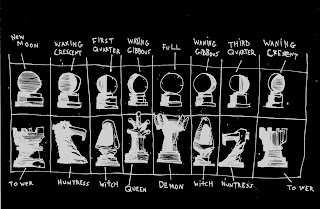 NEW MOON
WAXING CRESCENT
FIRST QUARTER
WAXING GIBBOUS
FULL
WANING GIBBOUS
THIRD QUARTER
WANING CRESENT
TOWER
HUNTRESS
WITCH
QUEEN
DEMON
WITCH
HUNTRESS
TOWER